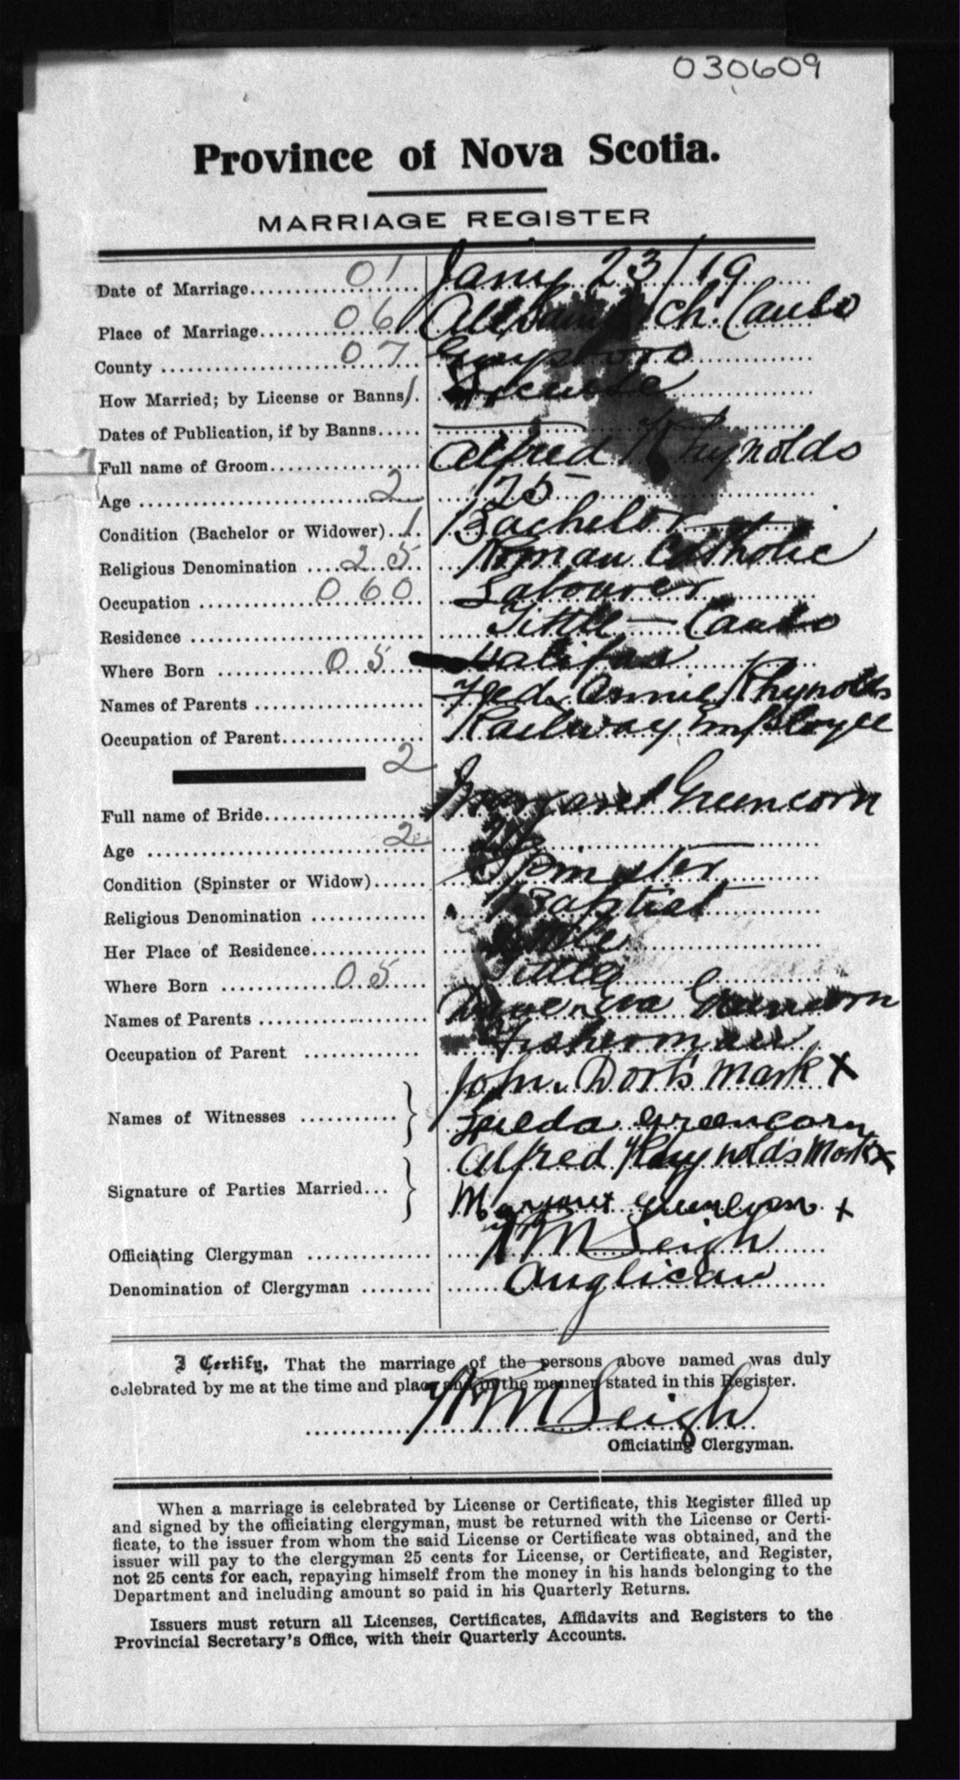 030609
Province of Nova Scotia.
MARRIAGE REGISTER
Date of Marriage 01 Jany 23/19
Place of Marriage 06 All Saints Ch. Canso
County 07 Guysboro
How Married; by License or Banns 1 License
Dates of Publication, if by Banns
Full name of Groom Alfred Rhynolds
Age 2 25
Condition (Bachelor or Widower) 1 Bachelor
Religious Denomination 25 Roman Catholic
Occupation 060 Labourer
Residence Tittle - Canso
Where Born 05 Halifax
Names of Parents Fred. Annie Rhynolds
Occupation of Parent Railway Employee
2
Full name of Bride Margaret Greencorn
Age 2
Condition (Spinster or Widow) Spinster
Religious Denomination Baptist
Her Place of Residence Tittle
Where Born 05 Tittle
Names of Parents Greencorn
Occupation of Parent Fisherman
John Dort's Mark X
Names of Witnesses
Greencorn
Alfred Rhynolds Mark X
Signature of Parties Married
Margaret Greencorn X
Officiating Clergyman Leigh
Denomination of Clergyman Anglican
I Certify, That the marriage of the persons above named was duly
celebrated by me at the time and place and in the manner stated in this Register.
Leigh
Officiating Clergyman.
When a marriage is celebrated by License or Certificate, this Register filled up
and signed by the officiating clergyman, must be returned with the License or Certi-
ficate, to the issuer from whom the said License or Certificate was obtained, and the
issuer will pay to the clergyman 25 cents for License, or Certificate, and Register,
not 25 cents for each, repaying himself from the money in his hands belonging to the
Department and including amount so paid in his Quarterly Returns.
Issuers must return all Licenses, Certificates, Affidavits and Registers to the
Provincial Secretary's Office, with their Quarterly Accounts.